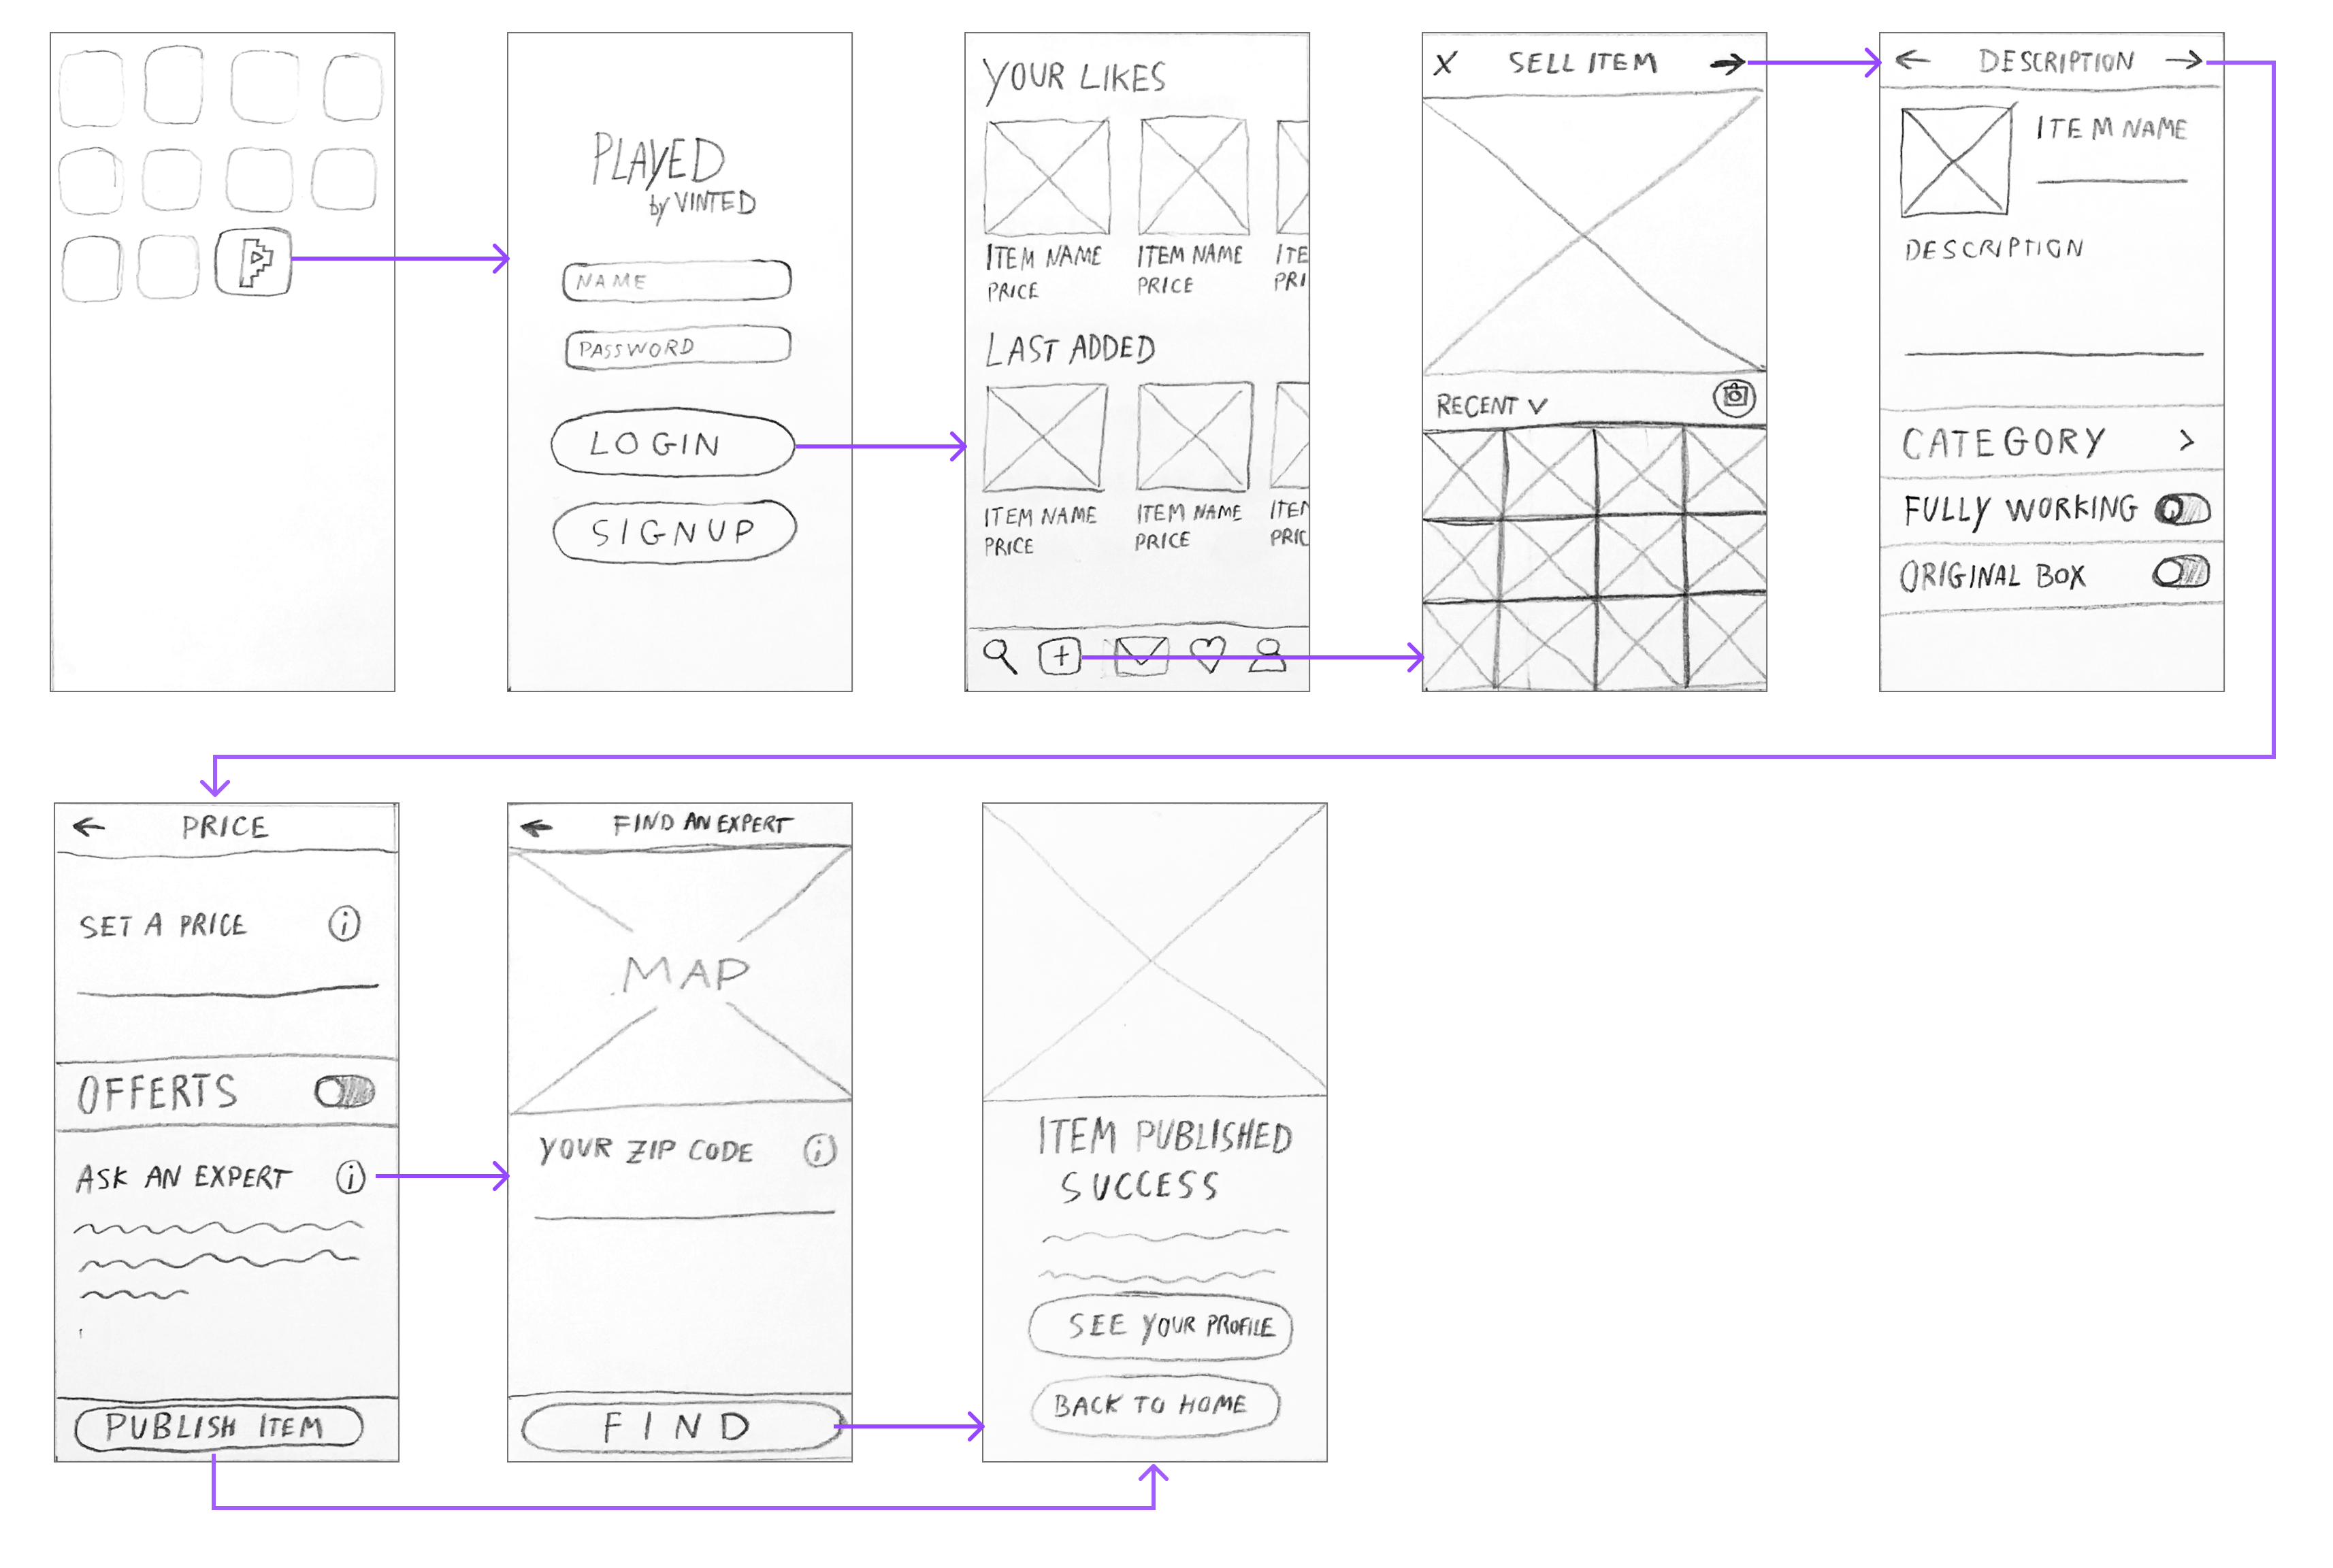 PLAYED
by VINTED
NAME
PASSWORD
LOGIN
SIGNUP
YOUR LIKES
ITEM NAME ITEM NAME ITE
PRICE PRICE PRI
LAST ADDED
ITEM NAME ITEM NAME ITEM
PRICE PRICE PRIC
X SELL ITEM
RECENT
DESCRIPTION
ITEM NAME
DESCRIPTION
CATEGORY >
FULLY WORKING
ORIGINAL BOX
PRICE
SET A PRICE i
OFFERTS
ASK AN EXPERT i
PUBLISH ITEM
FIND AN EXPERT
MAP
YOUR ZIP CODE i
FIND
ITEM PUBLISHED
SUCCESS
SEE YOUR PROFILE
BACK TO HOME